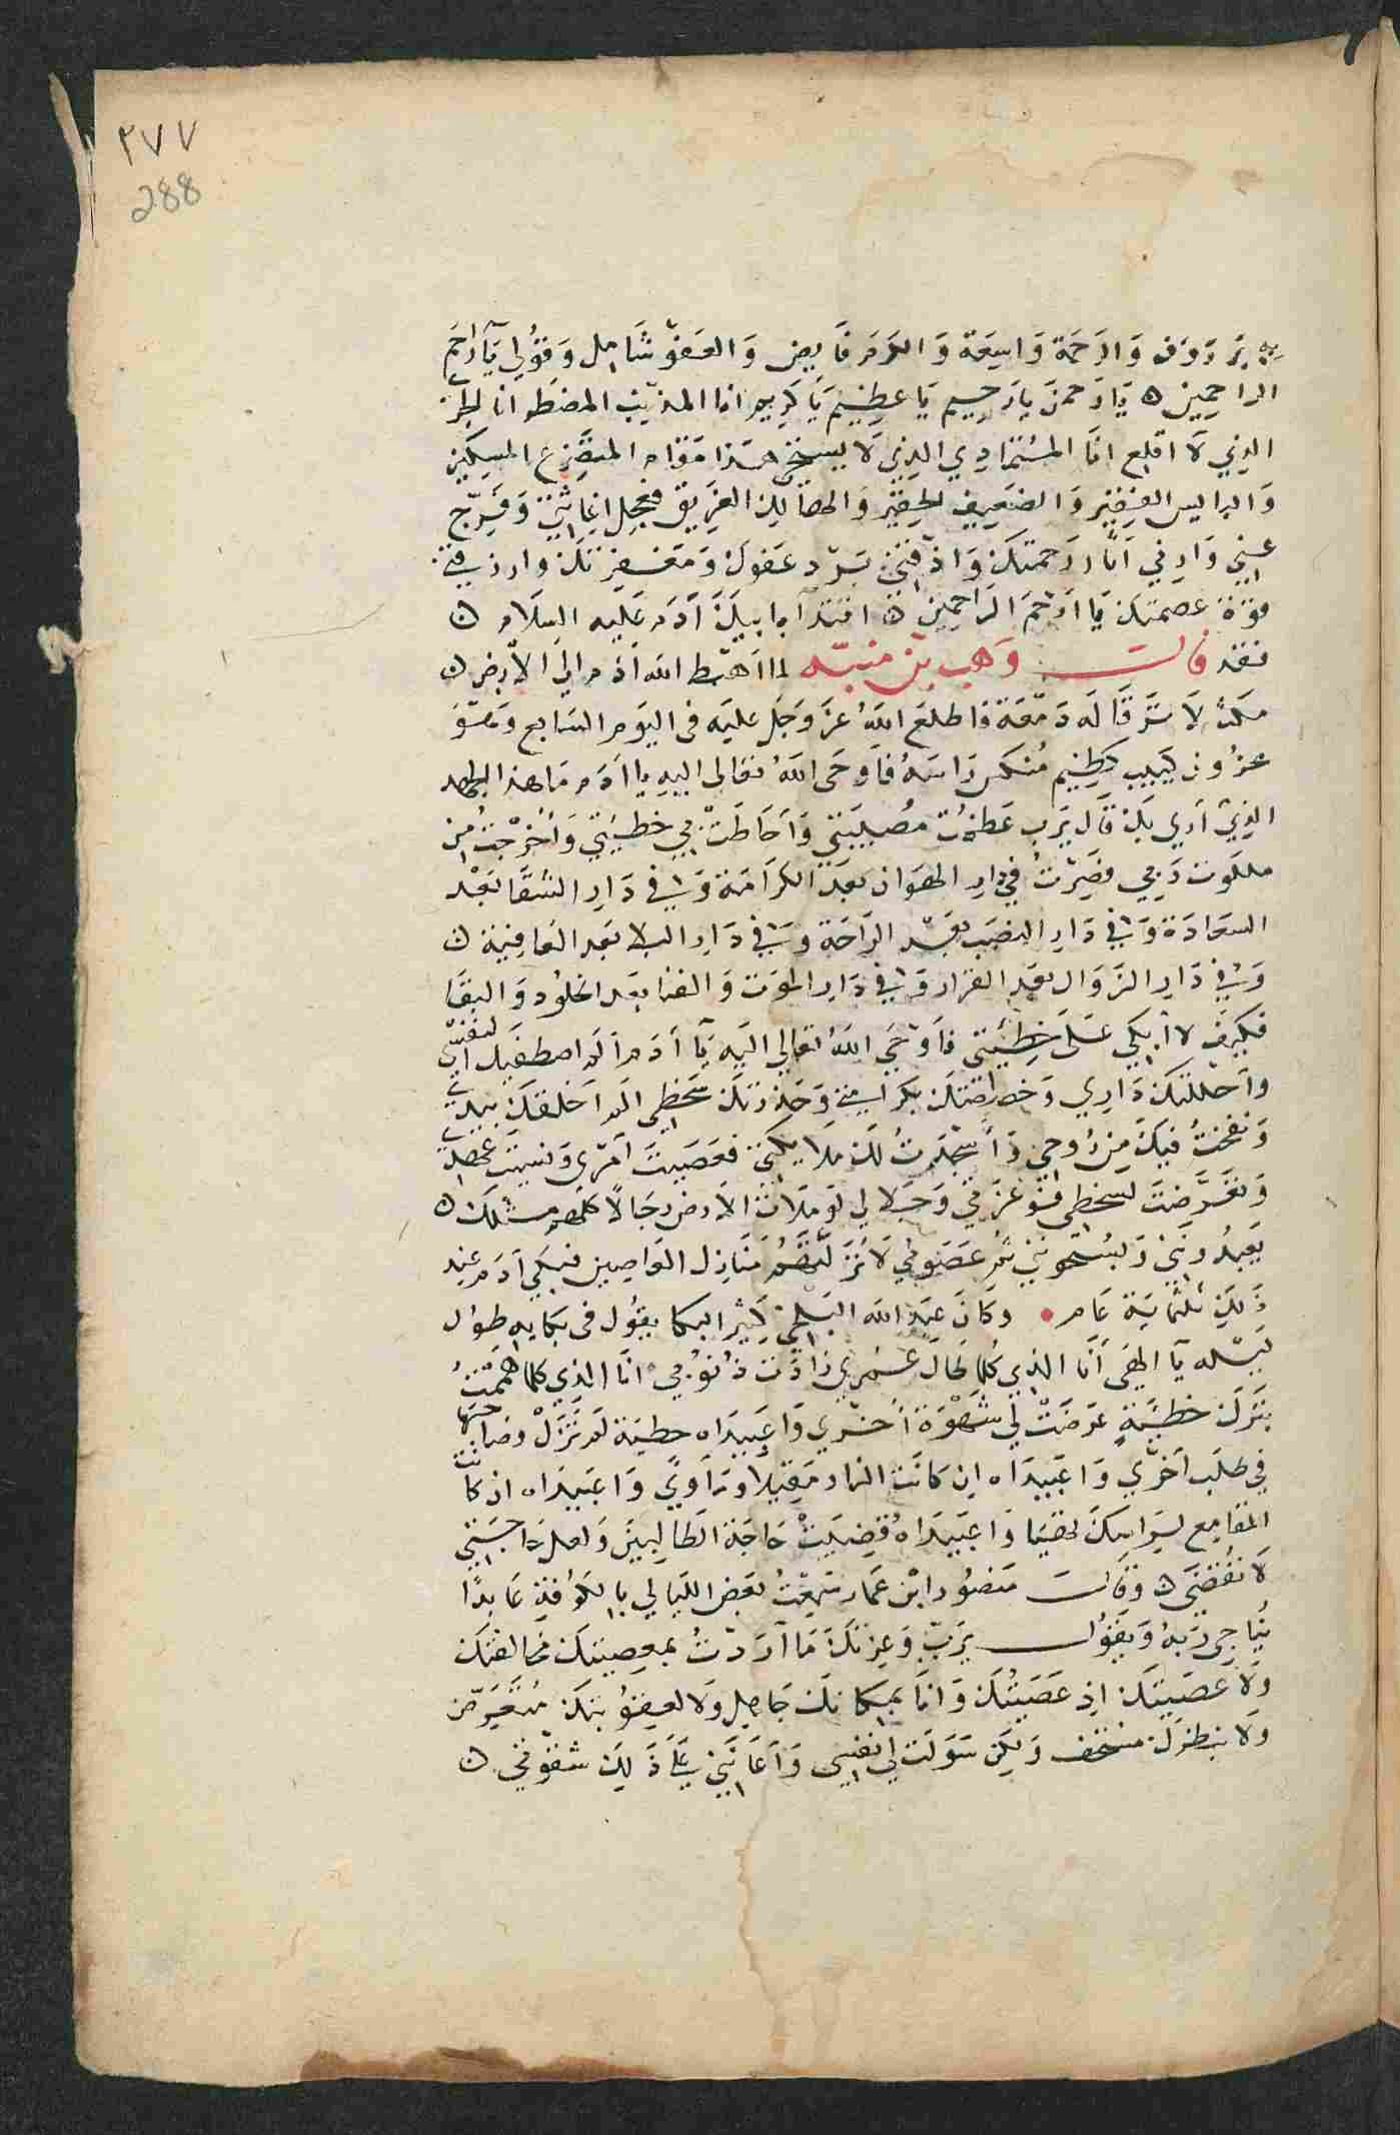 ٢٧٧
288
بر رؤف وَالرَحمَة وَاسِعَة وَالكَرَم فَايض وَالعَفوّ شَامِل وَقوُلي يَآ ارْحَم
الراحِمِين ه يَا رَحمنَ يا رَحِيم يَا عظِيِم يَا كَرِيم انا المذنِب المضطَر انا
الذِي لَا اقلِع انَا المتمَادِي الذِي لَا يستحي هَذا مَقام المتضَرِع المِسكين
وَالبايس الفِقير وَالضَعيِف الحِقير وَالهَالِك الغَرِيق فعَجِل اغِاثتي وَفرِّج
عنِي وَارِني اثَار رَحمتك وَاذقني بَرْد عَفوك وَمَغفِرتك وارزقني
قوَة عصمتك يَا ارْحَمَ الرَاحمِين ه اقتدآ بابيكَ آدَم عَليه السَلام ه
فقد قالت وَهب بن منبّه لما اهبَط الله آدَم الي الأرض ه
مكث لا ترقَا له دَمعَة فاطلعَ اللهُ عزَ وَجَل عليَه في اليَوم السَابع وَهوَ
محزُون كيِيب كظِيم مُنكس رَاسَهُ فاوحَى اللهُ تعَالى اليهِ يا ادَم مَا هذا الجهد
الذِي ارَي بكَ قَال يَرب عَظمُت مُصيبَتي وَاحَاطَت بي خطيَتي وَاخرِجتُ مِن
ملكوت رَبِي فصِرتُ في دَارِ الهَوَان بعدَ الكَرامَة وَفي دَارِ الشقَا بَعْد
السعَادَة وَفي دَارِ النصَب بَعد الرَاحَة وَفي دَارِ البلا بَعد العَافِية ه
وَفي دَارِ الزَوَال بعد القرَار وَفي دَارِ الموَت وَالفنا بعَد الخلوُد وَالبقَا
فكيفَ لا ابكِي عَلى خطِيئتي فاَوحَي اللهُ تعَالي اليَه يَآ ادَم الَم اصطفيك لنفسِي
واحَللتك دَارِي وَخصَصتك بكَرامتي وَحَذرتك سَخطي الَم اخلقك بيدي
وَنفختُ فيكَ مِن رُوحي وَاسجَدتُ لك مَلايكتي فعَصَيت امرِي وَنسِيت عَهدي
وَتعَرضتَ لسَخطي فوَعزَتي وَجَلالي لو مَلأت الأرض رجَالًا كلهم مثلك ه
يَعبدُونني وَيسَبحوُنني ثُمَ عَصَوني لأنزلنّهُم مَنازِل العَاصِين فبكَي آدَم عِند
ذَلِك ثلثمايَة عَام وكَانَ عبد الله البَجلي كثِير البكا يقوُل في بكايهِ طوُل
ليَله يآ الهَي انَا الذِي كلما طَال عمرِي زَادَت ذنوُبي انَا الذي كلما هممَتُ
بتَركَ خطيَةٍ عَرضَتْ لي شَهوَة أخرَي وَاعبيدَاه خطيَة لَم تَبْل وصَاحبها
في طلَب اخرَي وَاعبيدَاه اِن كَانَت النار مَقيلا وَمَاوَي وَاعبيدَاه ان كانت
المقامع لرَاسِكَ تهيَا وَاعبَيدَاهُ قضيَت حَاجَة الطَالبِينَ وَلعل حَاجَتي
لَا تُقضَى ه وَقَالت منصُور ابن عمَار سَمِعتُ بعَض الليَالي بالكوُفة عَابدًا
يُناجي رَبهُ وَيقوُلــ يرَبِّ وَعِزتكَ مَا ارَدتُ بمعصِيتك مخالفتك
ولَا عَصَيتك اِذ عَصَيتُك وَانَا بمَكانك جَاهل وَلا لعقوُبتك مُتعَرّض
وَلا بنظرك مستخف وَلكِن سَوَلت لي نفسي وَاعَانتني عَلي ذَلِك شقوَتي ه